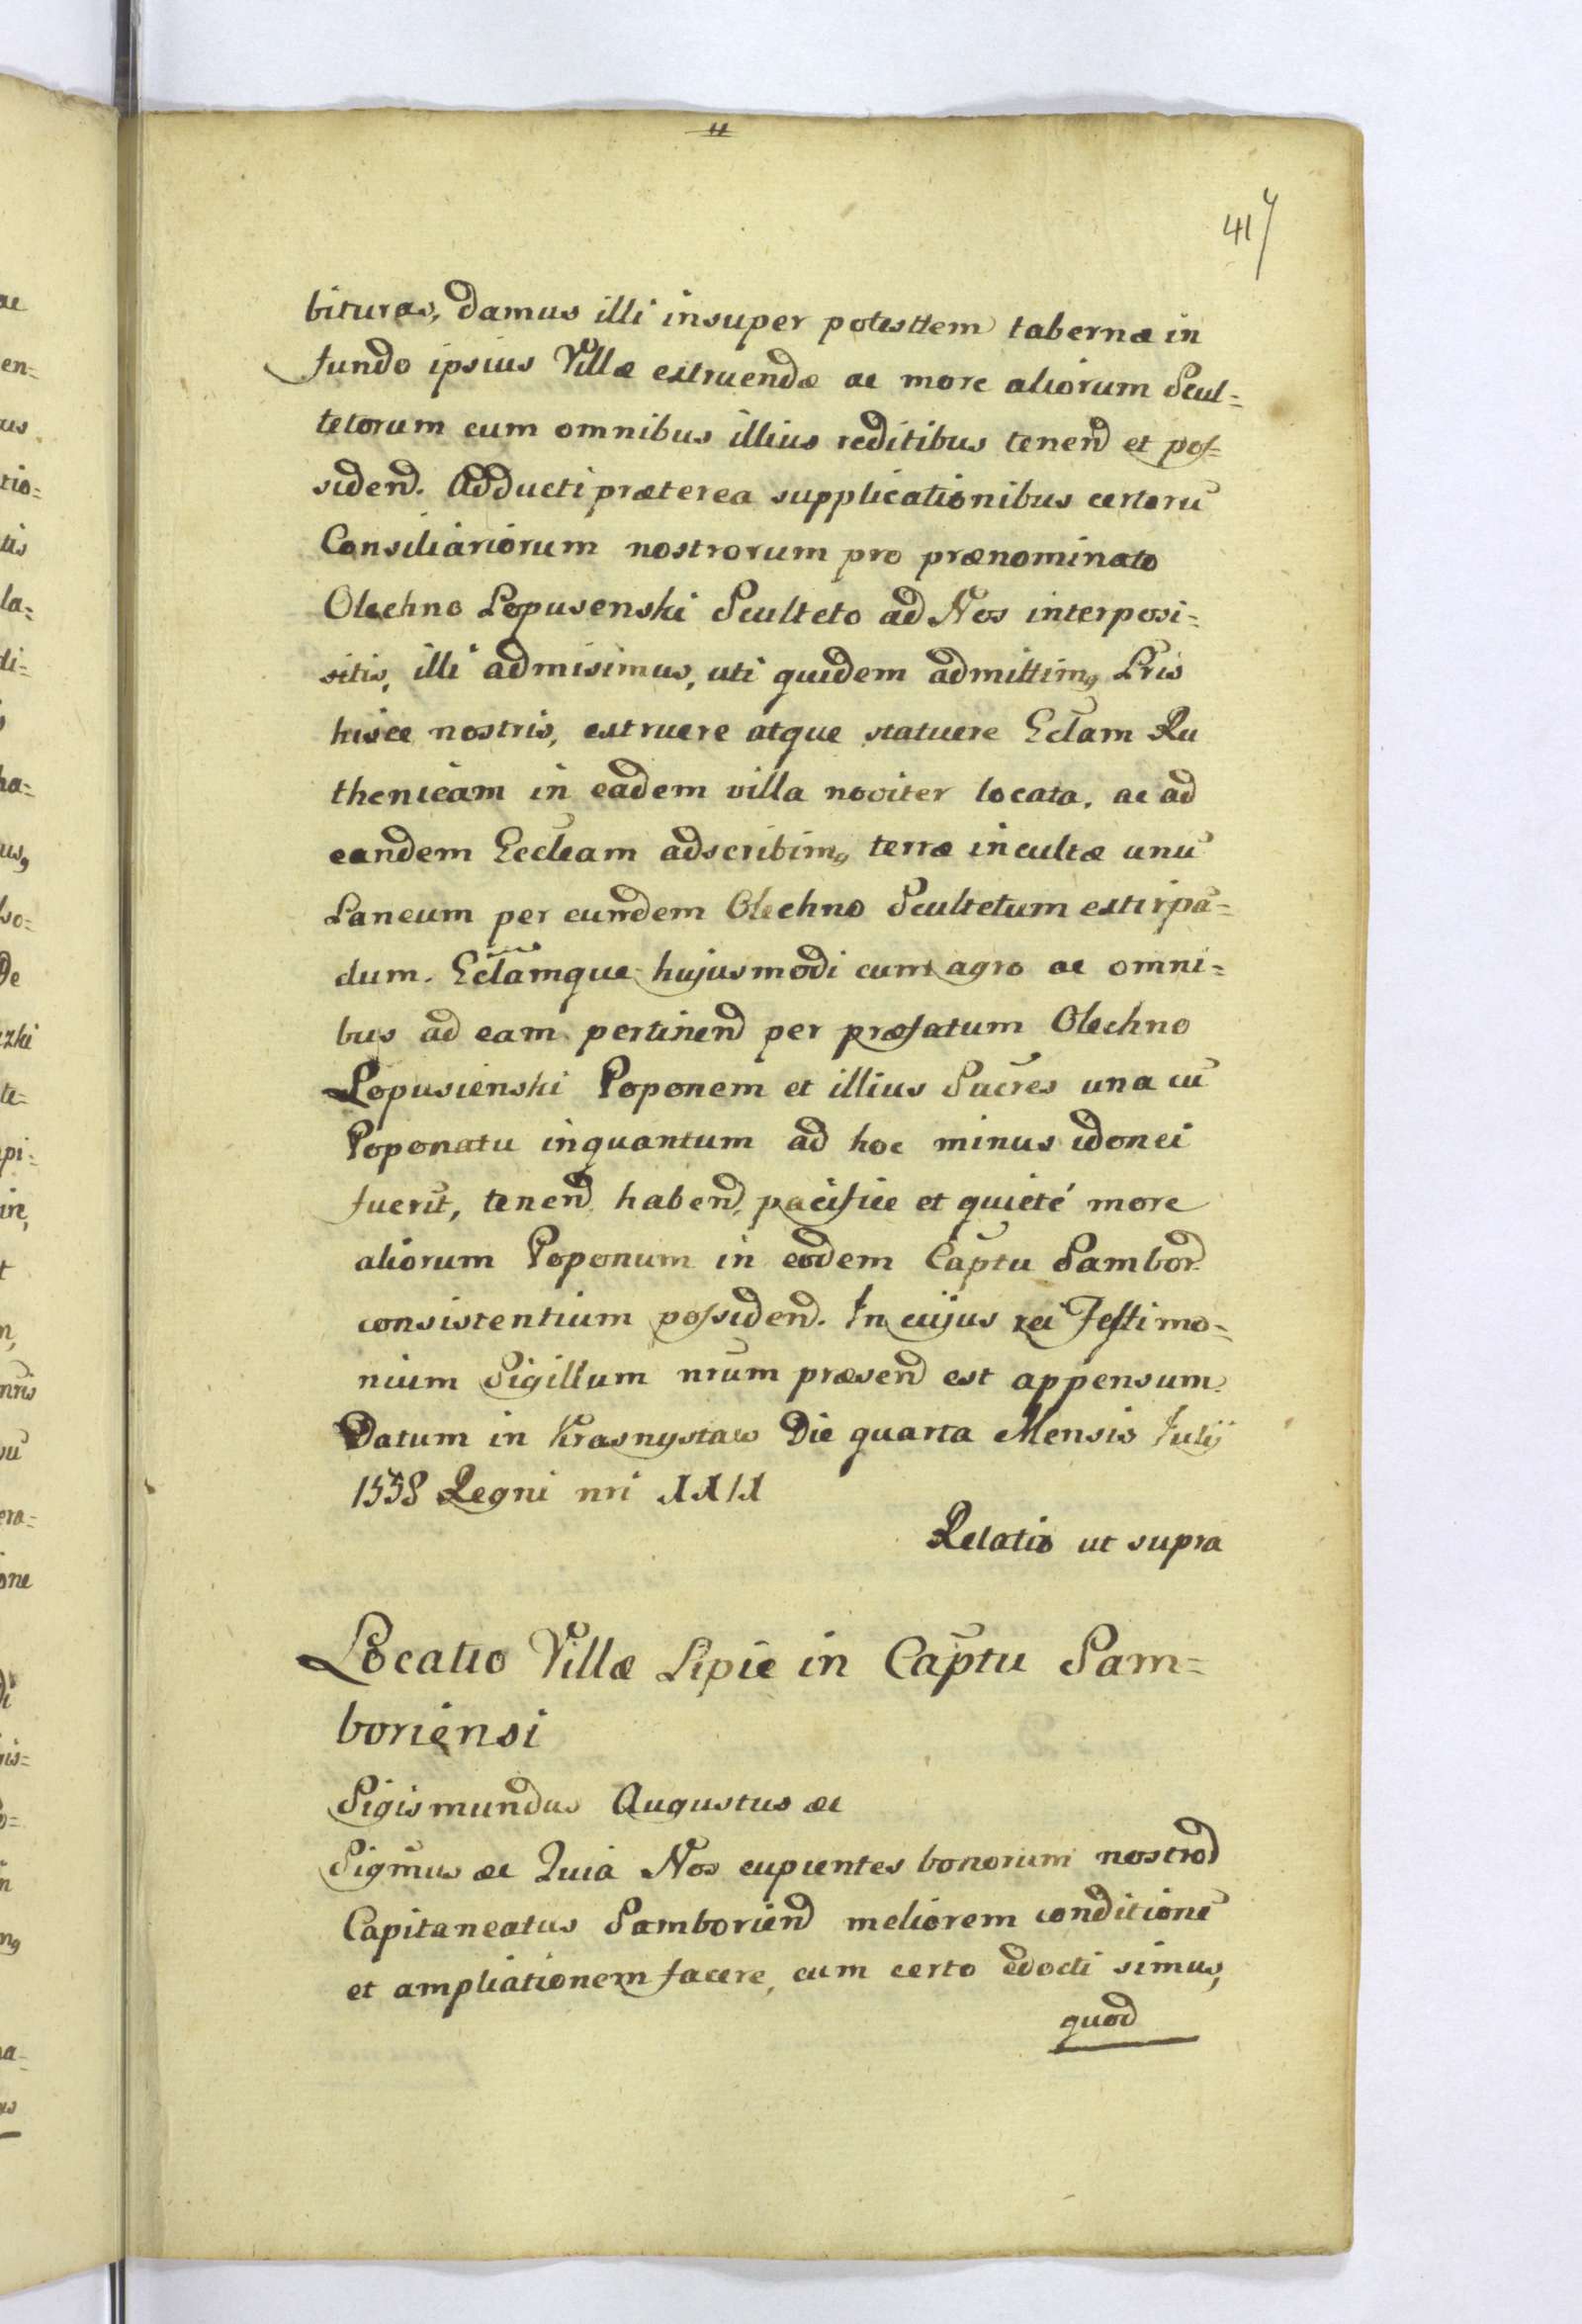 417
bituras, damus illi insuper potesttem tabernæ in
fundo ipsius Villæ extruendæ ac more aliorum Scul=
tetorum cum omnibus illius reditibus tenend et pos=
sidend. Adducti præterea supplicationibus certorū
Consiliariorum nostrorum pro prænominato
Olechno Lopusenski Sculteto ad Nos interposi=
sitis, illi admisimus, uti quidem admittimq Lris
hisce nostris, extruere atque statuere Eclam Ru
thenicam in eadem villa noviter locata, ac ad
eandem Eccleam adscribimq terræ incultæ unū
Laneum per eundem Olechno Scultetum extirpā=
dum. Eclamque hujusmodi cum agro ac omni=
bus ad eam pertinend per præfatum Olechno
Lopusienski Poponem et illius Sucres una cū
Poponatu inquantum ad hoc minus idonei
fuerīt, tenend habend, pacifice et quieté more
aliorum Poponum in eodem Captu Sambor
consistentium possidend. In cujus rei Testimo=
nium Sigillum nrum præsend est appensum.
Datum in Krasnystaw Die quarta Mensis Julij
1558 Regni nri XXIX
Relatio ut supra
Locatio Villæ Lipie in Captu Sam=
boriensi
Sigismundus Augustus æc
Sigmus æc Quia Nos cupientes bonorum nostrod
Capitaneatus Samboriend meliorem conditionē
et ampliationem facere, cum certo edocti simus,
quod